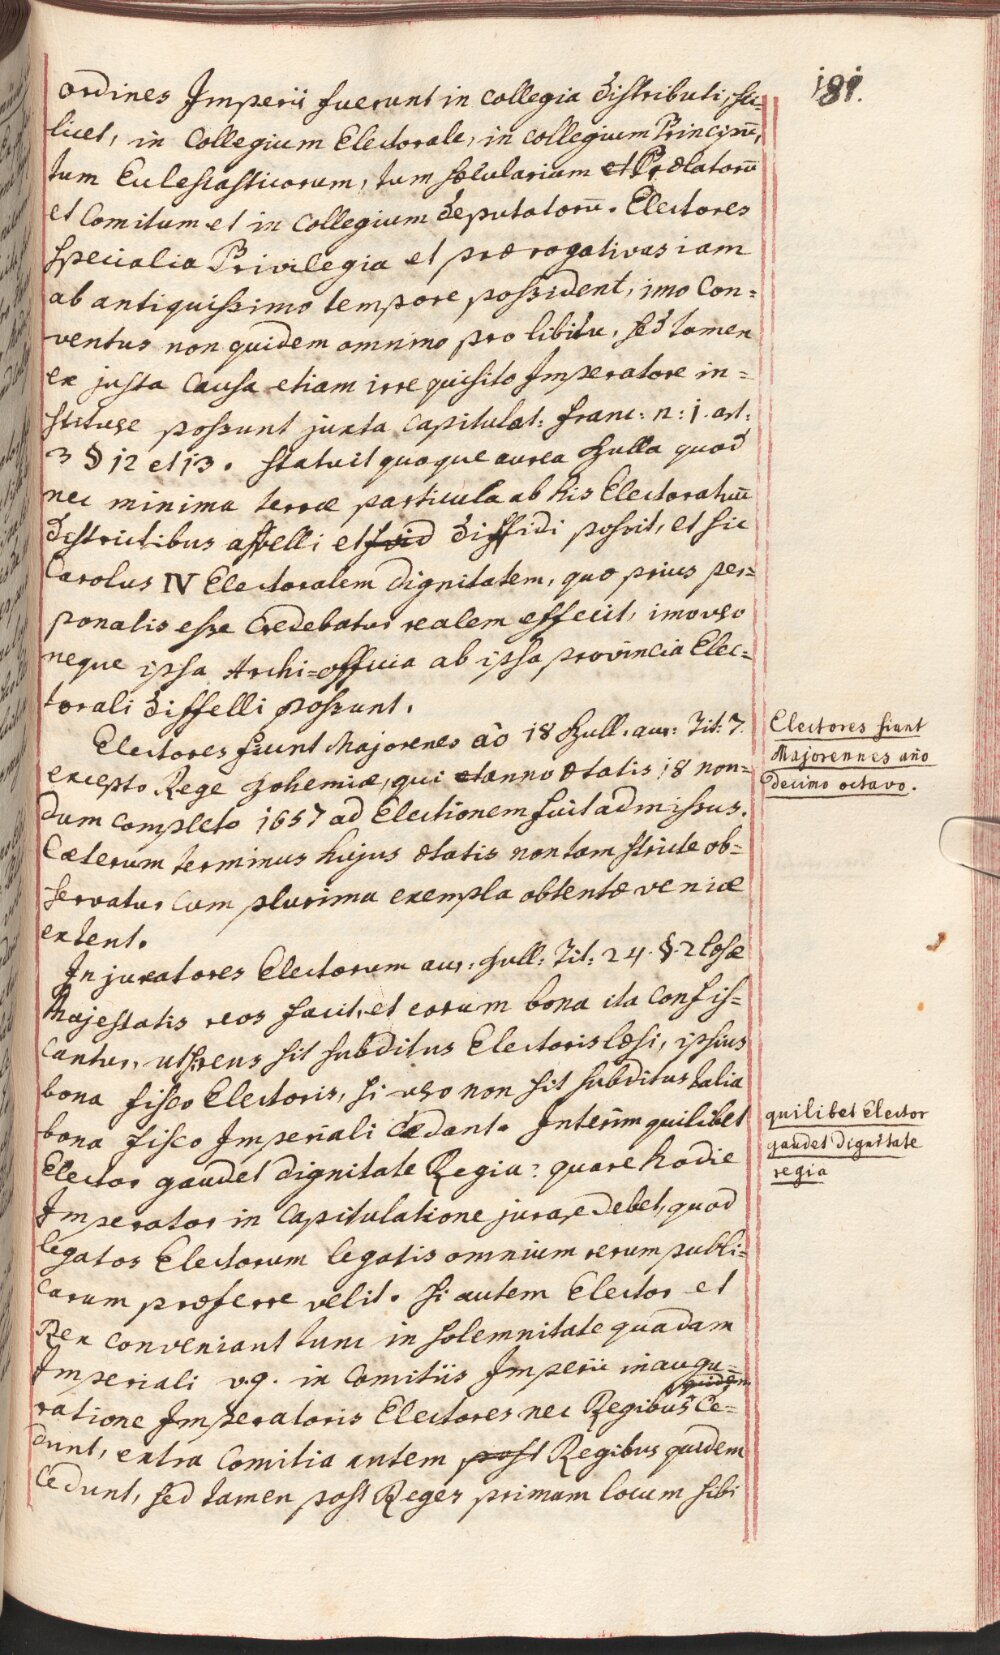 181.
ordines Imperii fuerunt in collegia distributi, sci-
licet, in Collegium Electorale, in collegium Principũ,
tum Eclesiasticorum, tum sæcularium et Prælatorũ
et Comitum et in Collegium deputatorũ. Electores
specialia Privilegia et prærogativas iam
ab antiquissimo tempore possident, imo Con=
ventus non quidem omnino pro libitu, sed tamen
ex justa Causa etiam irrequisito Imperatore in=
stituere possunt juxta Capitulat: Franc: n: 1. art:
3 § 12 et 13. Statuit quoque aurea Bulla quod
nec minima terræ particula ab his Electoratuũ
Districtibus avelli et diffidi possit, et sic
Carolus IV Electoralem dignitatem, quæ prius per=
sonalis esse credebatur realem effecit, imo vero
neque ipsa Archi=officia ab ipsa provincia Elec=
torali divelli possunt.
Electores fiunt Majorenes aõ 18 Bull. aur: Tit: 7.
excepto Rege Bohemiæ, qui anno ætatis 18 non=
dum completo 1657 ad Electionem fuit admissus.
Cæterum terminus hujus ætatis non tam stricte ob=
servatur cum plurima exempla obtentæ veniæ
extent.
Injuratores Electorum aur: Bull: Tit: 24. §. 2 læsæ
Majestatis reos facit, et eorum bona ita confis=
cantur, ut si reus sit subditus Electoris læsi, ipsius
bona fisco Electoris, si vero non sit subditus talia
bona fisco Imperiali cædant. Interim quilibet
Elector gaudet dignitate Regia: quare hodie
Imperator in Capitulatione jurare debet, quod
legatos Electorum legatis omnium rerum publi=
carum præferre velit. Si autem Elector et
Rex conveniant tunc in solemnitate quadam
Imperiali v.g. in Comitiis Imperii inaugu=
quidem
ratione Imperatoris Electores nec Regibus Ce=
dunt, extra Comitia autem post Regibus quidem
Cedunt, sed tamen post Reges primum locum sibi
Electores fiunt
Majorennes año
decimo octavo.
quilibet Elector
gaudet dignitate
regia